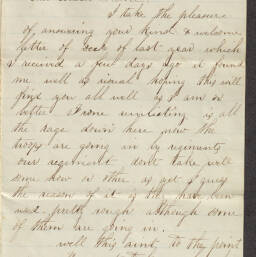 I take the pleasure
of answering your kind & welcome
letter of Dec of last year which
I recived a few days ago it found
me well as usual hoping this will
find you all well as I am or
better enlisting is all
the rage down here now the
troops are going in by regiments
our regiment dont take well
some how or other as yet I guess
the reason of it is they have ben
used pretty rough although some
of them are going in.
well this aint to the point